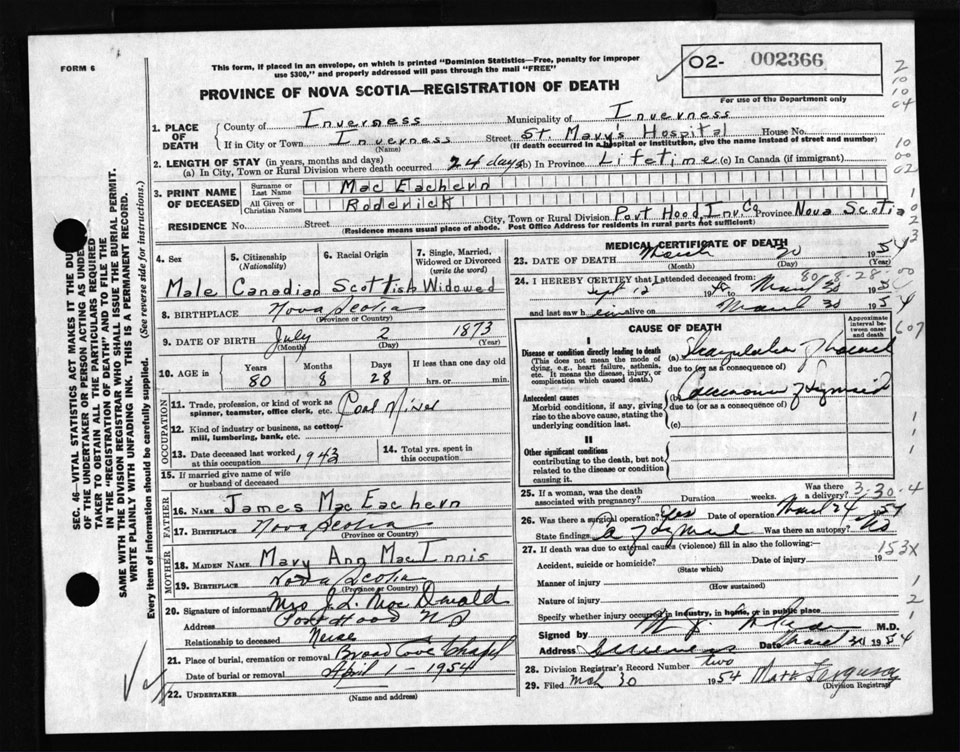 FORM 6
This form, if placed in an envelope, on which is printed "Dominion Statistics—Free, penalty for improper
use $300," and properly addressed will pass through the mail "FREE"
O2- 002366
For use of the Department only
PROVINCE OF NOVA SCOTIA—REGISTRATION OF DEATH
1. PLACE OF DEATH
County of Inverness Municipality of Inverness
If in City or Town Inverness (Name) Street St. Mary's Hospital House No.
(If death occurred in a hospital or institution, give the name instead of street and number)
2. LENGTH OF STAY (in years, months and days)
(a) In City, Town or Rural Division where death occurred 24 days (b) In Province Lifetime (c) In Canada (if immigrant)
3. PRINT NAME OF DECEASED
Surname or Last Name Mac Eachern
All Given or Christian Names Roderick
RESIDENCE No. Street City, Town or Rural Division Port Hood, Inv. Co. Province Nova Scotia
(Residence means usual place of abode. Post Office Address for residents in rural parts not sufficient)
4. Sex
Male
5. Citizenship (Nationality)
Canadian
6. Racial Origin
Scottish
7. Single, Married, Widowed or Divorced (write the word)
Widowed
8. BIRTHPLACE Nova Scotia
(Province or Country)
9. DATE OF BIRTH July 2 1873
(Month) (Day) (Year)
10. AGE in Years Months Days If less than one day
80 8 28 hrs. or min.
OCCUPATION
11. Trade, profession, or kind of work as
spinner, teamster, office clerk, etc. Coal Miner
12. Kind of industry or business, as cotton-
mill, lumbering, bank, etc.
13. Date deceased last worked
at this occupation 1943
14. Total yrs. spent in
this occupation
15. If married give name of wife
or husband of deceased
FATHER
16. Name James Mac Eachern
17. Birthplace Nova Scotia
(Province or Country)
MOTHER
18. MAIDEN NAME Mary Ann MacInnis
19. Birthplace Nova Scotia
(Province or Country)
20. Signature of informant Mrs J. L. MacDonald
Address Port Hood NS
Relationship to deceased Neise
21. Place of burial, cremation or removal Broad Cove Chapel
Date of burial or removal April 1 - 1954
22. UNDERTAKER
(Name and address)
MEDICAL CERTIFICATE OF DEATH
23. DATE OF DEATH March 30 1954
(Month) (Day)
24. I HEREBY CERTIFY that I attended deceased from
Sept 12 19 to March 30 1954
80-8-28-00
and last saw him alive on March 30 1954
CAUSE OF DEATH
Approximate interval between onset and death
I
Disease or condition directly leading to death
(This does not mean the mode of
dying, e.g., heart failure, asthenia,
etc. It means the disease, injury, or
complication which caused death.)
(a) Strangulation of bowel
due to (or as a consequence of)
Antecedent causes
Morbid conditions, if any, giving
rise to the above cause, stating the
underlying condition last.
(b) Carcinoma of Sigmoid
due to (or as a consequence of)
(c)
II
Other significant conditions
contributing to the death, but not
related to the disease or condition
causing it.
25. If a woman, was the death
associated with pregnancy? Duration weeks. Was there a delivery?
3-30-4
26. Was there a surgical operation? Yes Date of operation March 24 1954
State findings Ca of Sigmoid Was there an autopsy? No
27. If death was due to external causes (violence) fill in also the following:—
153X
Accident, suicide or homicide? Date of injury 19
(State which)
Manner of injury
(How sustained)
Nature of injury
Specify whether injury occurred in industry, in home, or in public place
Signed by M.D.
Address Inverness Date March 30 1954
28. Division Registrar's Record Number two
29. Filed Mch 30 1954
(Division Registrar)
SEC. 46—VITAL STATISTICS ACT MAKES IT THE DUTY
OF THE UNDERTAKER OR PERSON ACTING AS UNDER-
TAKER TO OBTAIN ALL THE PARTICULARS REQUIRED
IN THE "REGISTRATION OF DEATH" AND TO FILE THE
SAME WITH THE DIVISION REGISTRAR WHO SHALL ISSUE THE BURIAL PERMIT.
WRITE PLAINLY WITH UNFADING INK. THIS IS A PERMANENT RECORD.
Every item of information should be carefully supplied. (See reverse side for instructions.)
2
10
10
04
10
00
02
1
0
2
3
607
1
1
1
1
2
1